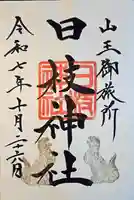 山王御旅所
日枝神社
令和七年十月二十六日